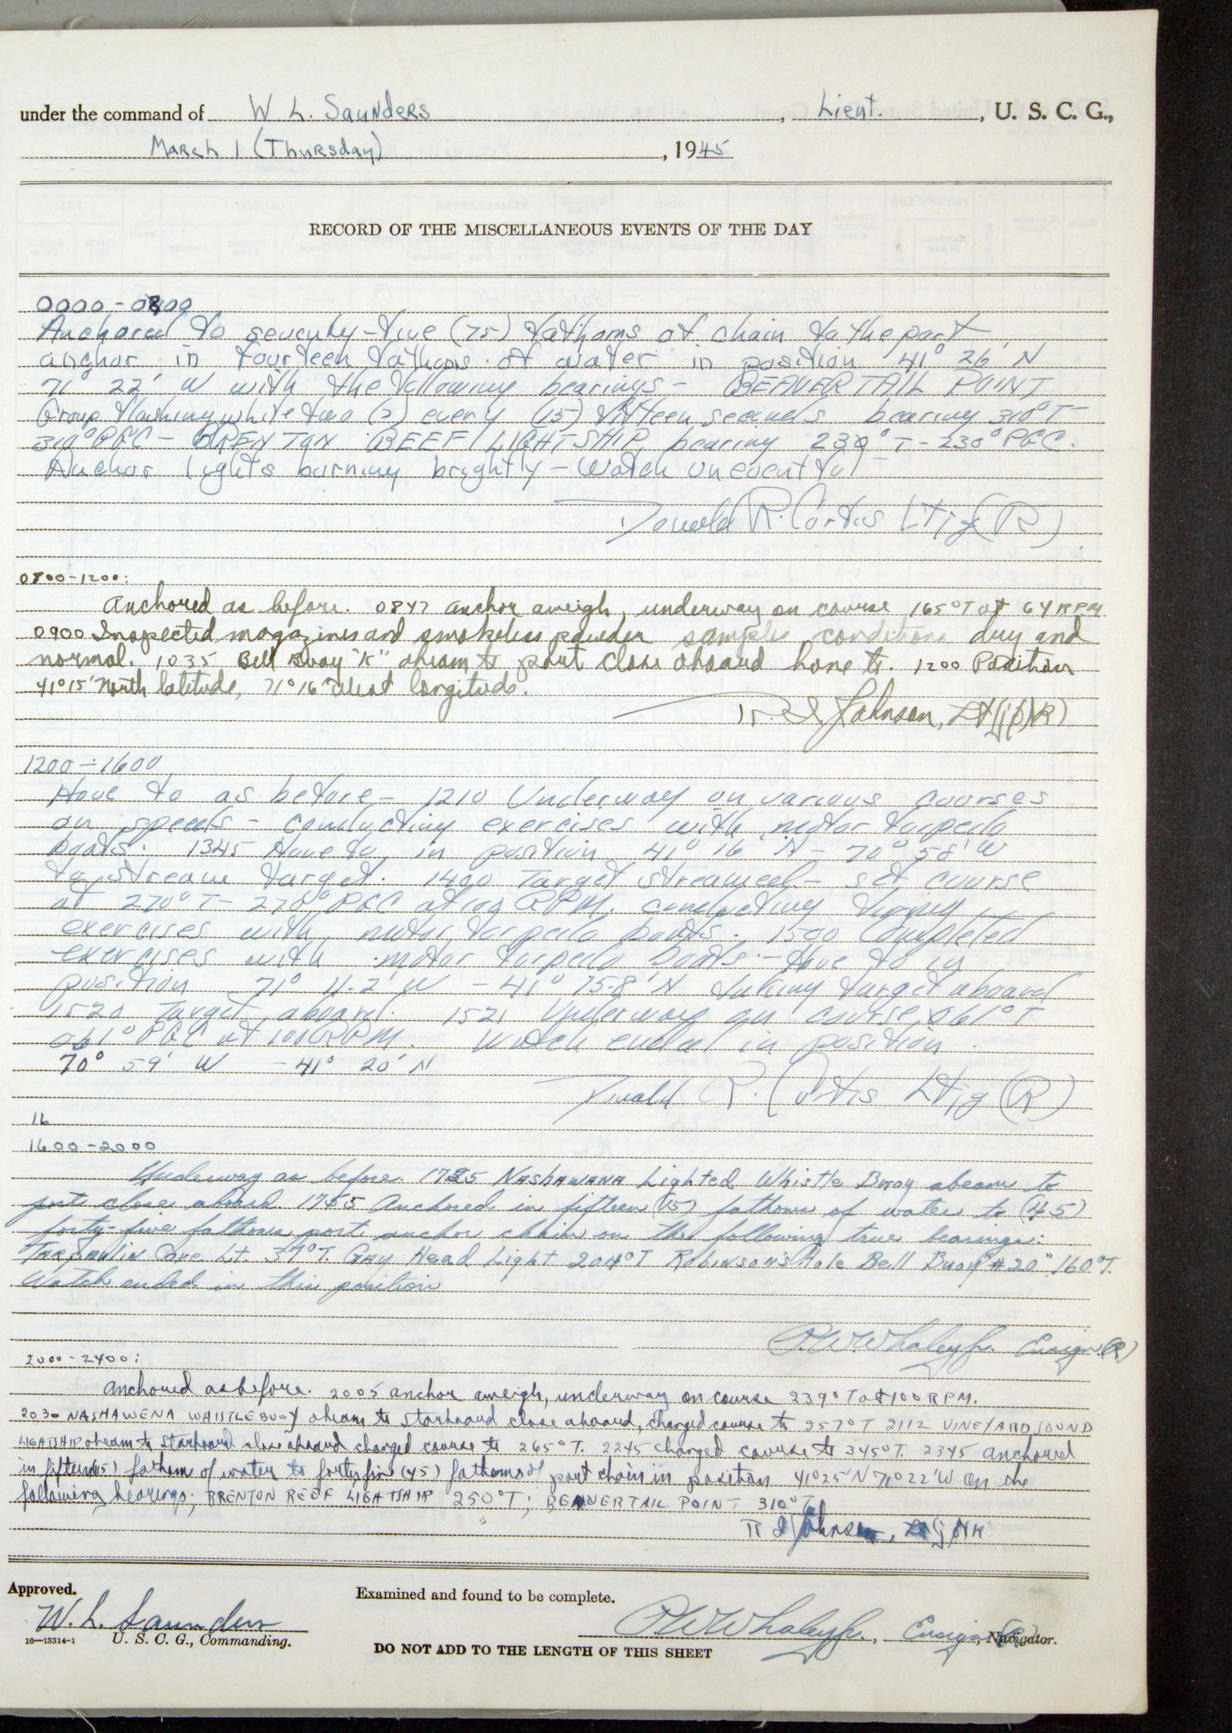 under the command of W L. Saunders, Lieut., U. S. C. G.,
March 1 (Thursday), 1945
RECORD OF THE MISCELLANEOUS EVENTS OF THE DAY
0000-0800
Anchored to seventy-five (75) fathoms of chain to the port
anchor in fourteen fathoms of water in position 41° 26' N
71° 22' W with the following bearings - BEAVERTAIL POINT
Group flashing white two (2) every (15) fifteen seconds bearing 310°T-
310°PGC - BRENTON REEF LIGHTSHIP bearing 230°T-230°PGC.
Anchor lights burning brightly - Watch uneventful -
Donald R. Curtis Ltjg (R)
0800-1200:
Anchored as before. 0847 anchor aweigh, underway on course 165°T at 64 RPM
0900 Inspected magazines and smokeless powder samples, conditions dry and
normal. 1035 Bell Buoy "K" abeam to port close aboard hove to. 1200 Position
41°15' North latitude, 71°16' West longitude.
Johnson, Lt(jg)(R)
1200-1600
Hove to as before - 1210 Underway on various courses
on speeds - conducting exercises with motor torpedo
boats. 1345 Hove to in position 41° 16' N - 70° 58' W
to stream target. 1400 Target streamed - set course
at 270°T- 270°PGC at 100 RPM. conducting
exercises with motor torpedo boats. 1500 Completed
exercises with motor torpedo boats - Hove to in
position 71° 11.2' W - 41° 15.8' N taking target aboard
1520 Target aboard. 1521 Underway on course 061°T
061°PGC at 100 RPM. Watch ended in position
70° 59' W - 41° 20' N
Donald R. Curtis Ltjg (R)
16
1600-2000
Underway as before 1735 Nashawena Lighted Whistle Buoy abeam to
port close aboard 1755 Anchored in fifteen (15) fathoms of water to (45)
forty-five fathoms port anchor chain on the following true bearings:
Tarpaulin Cove Lt. 37°T. Gay Head Light 204°T Robinson's Hole Bell Buoy #20" 160°T.
Watch ended in this position
P.W. Whaley Jr. Ensign (R)
2000-2400:
Anchored as before. 2005 anchor aweigh, underway on course 239°T at 100 RPM.
2030 NASHAWENA WHISTLE BUOY abeam to starboard close aboard, changed course to 257°T 2112 VINEYARD SOUND
LIGHTSHIP abeam to starboard close aboard changed course to 265°T. 2245 changed course to 345°T. 2345 anchored
in fifteen (15) fathom of water to forty five (45) fathoms of port chain in position 41°25'N 71°22'W on the
following bearings; BRENTON REEF LIGHTSHIP 250°T; BEAVERTAIL POINT 310°T
Johnson, Lt(jg)R
Approved.
W. L. Saunders
16-13314-1 U. S. C. G., Commanding.
Examined and found to be complete.
P.W. Whaley Jr., Ensign (R), Navigator.
DO NOT ADD TO THE LENGTH OF THIS SHEET